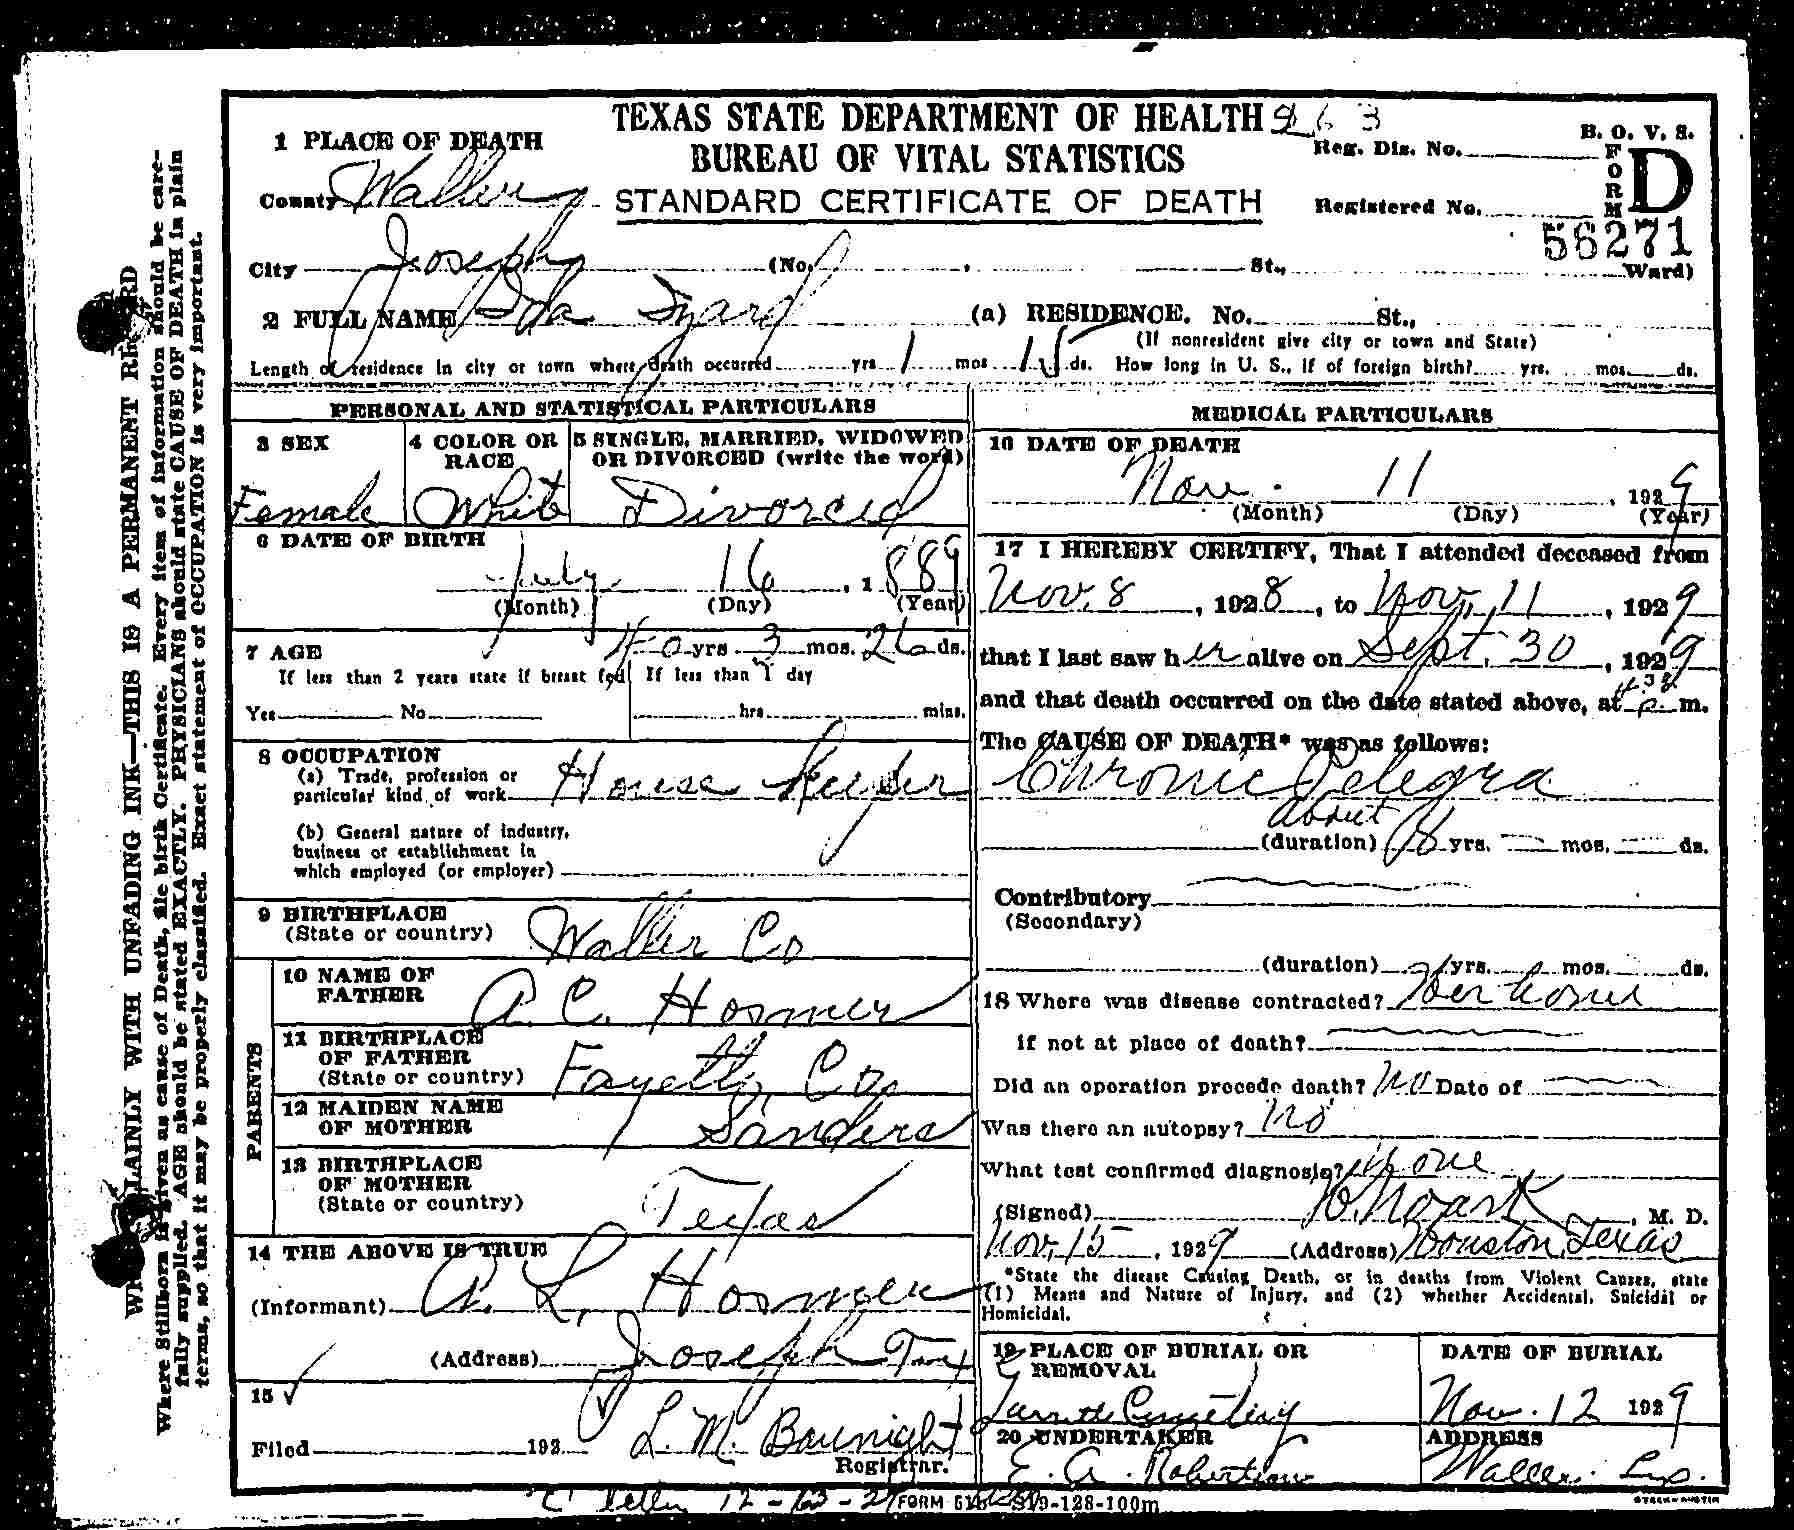 TEXAS STATE DEPARTMENT OF HEALTH 263
BUREAU OF VITAL STATISTICS
STANDARD CERTIFICATE OF DEATH
Reg. Dis. No.
Registered No.
B. O. V. S.
FORM D
56271
1 PLACE OF DEATH
County Waller
City Joseph (No. , St., Ward)
2 FULL NAME Ida Izard (a) RESIDENCE. No. St.,
(If nonresident give city or town and State)
Length of residence in city or town where death occurred yrs 1 mos 15 ds. How long in U. S., if of foreign birth? yrs. mos. ds.
PERSONAL AND STATISTICAL PARTICULARS
3 SEX
Female
4 COLOR OR RACE
White
5 SINGLE, MARRIED, WIDOWED
OR DIVORCED (write the word)
Divorced
6 DATE OF BIRTH
July 16, 1889
(Month) (Day) (Year)
7 AGE 40 yrs 3 mos. 26 ds.
If less than 2 years state if breast fed If less than 1 day
Yes No hrs mins.
8 OCCUPATION
(a) Trade, profession or
particular kind of work House Keeper
(b) General nature of industry,
business or establishment in
which employed (or employer)
9 BIRTHPLACE
(State or country) Waller Co
PARENTS
10 NAME OF
FATHER A. C. Hosmer
11 BIRTHPLACE
OF FATHER
(State or country) Fayette Co.
12 MAIDEN NAME
OF MOTHER Sanders
13 BIRTHPLACE
OF MOTHER
(State or country) Texas
14 THE ABOVE IS TRUE
(Informant) A. L. Hosmer
(Address) Joseph Tex
15 ✓
Filed 192
L. M. Baunight
Registrar.
MEDICAL PARTICULARS
16 DATE OF DEATH
Nov. 11, 1929
(Month) (Day) (Year)
17 I HEREBY CERTIFY, That I attended deceased from
Nov. 8, 1928, to Nov. 11, 1929
that I last saw her alive on Sept. 30, 1929
and that death occurred on the date stated above, at p. m.
The CAUSE OF DEATH* was as follows:
Chronic Pelegra
about
(duration) yrs. mos. ds.
Contributory
(Secondary)
(duration) yrs. mos. ds.
18 Where was disease contracted? Her home
if not at place of death?
Did an operation precede death? No Date of
Was there an autopsy? No
What test confirmed diagnosis? None
(Signed) M. D.
Nov. 15, 1929 (Address) Houston, Texas
*State the disease Causing Death, or in deaths from Violent Causes, state
(1) Means and Nature of Injury, and (2) whether Accidental, Suicidal or
Homicidal.
19 PLACE OF BURIAL OR
REMOVAL
Cemetery
DATE OF BURIAL
Nov. 12 1929
20 UNDERTAKER
E. A. Robertson
ADDRESS
Waller,
12-13-29 FORM S19-128-100m
WRITE PLAINLY WITH UNFADING INK—THIS IS A PERMANENT RECORD
Where Stillborn is given as cause of Death, file birth Certificate. Every item of information should be care-
fully supplied. AGE should be stated EXACTLY. PHYSICIANS should state CAUSE OF DEATH in plain
terms, so that it may be properly classified. Exact statement of OCCUPATION is very important.